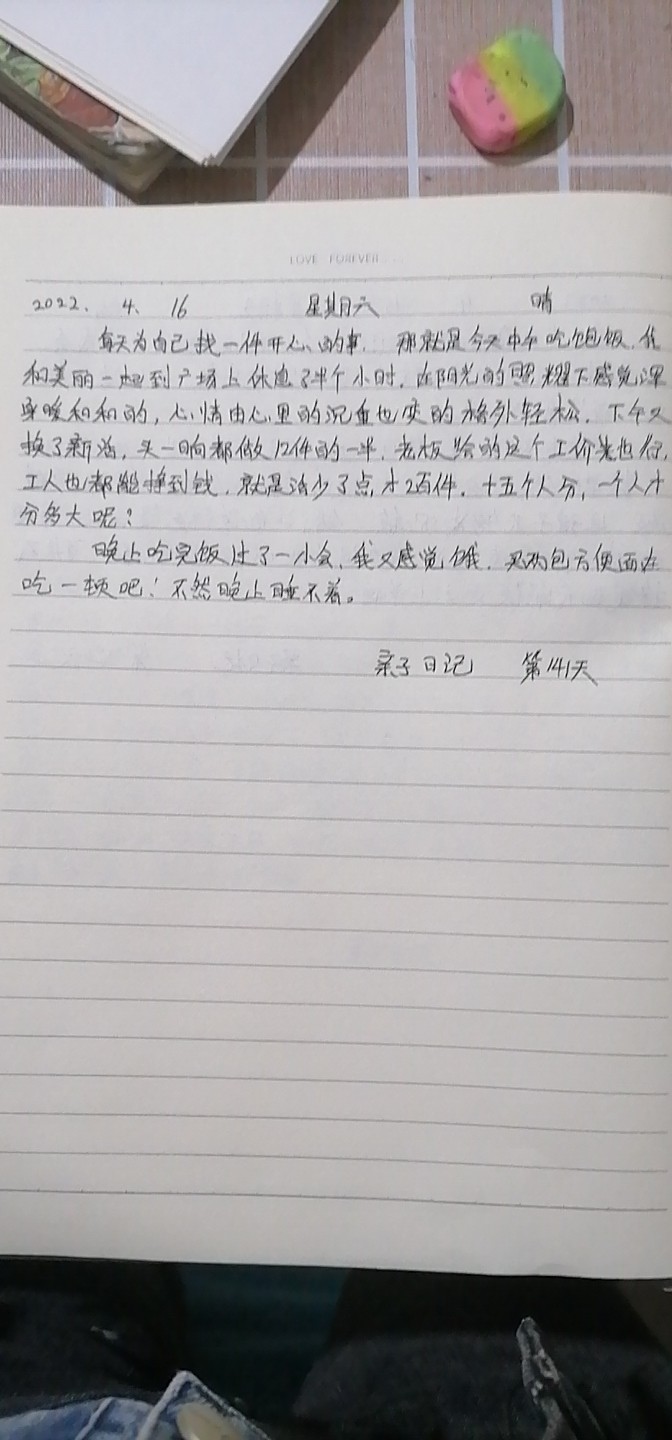 LOVE FOREVER
2022. 4. 16 星期六 晴
每天为自己找一件开心的事. 那就是今天中午吃饱饭, 我
和美丽一起到广场上休息了半个小时. 在阳光的照耀下感觉浑
身暖和和的, 心情由心里的沉重也变的格外轻松. 下午又
换了新活, 头一晌都做12件的一半. 老板给的这个工价也行,
工人也都能挣到钱. 就是活少了点, 才2百件. 十五个人分, 一个人才
分多大呢?
晚上吃完饭过了一小会, 我又感觉饿. 买两包方便面在
吃一顿吧! 不然晚上睡不着。
亲子日记 第141天